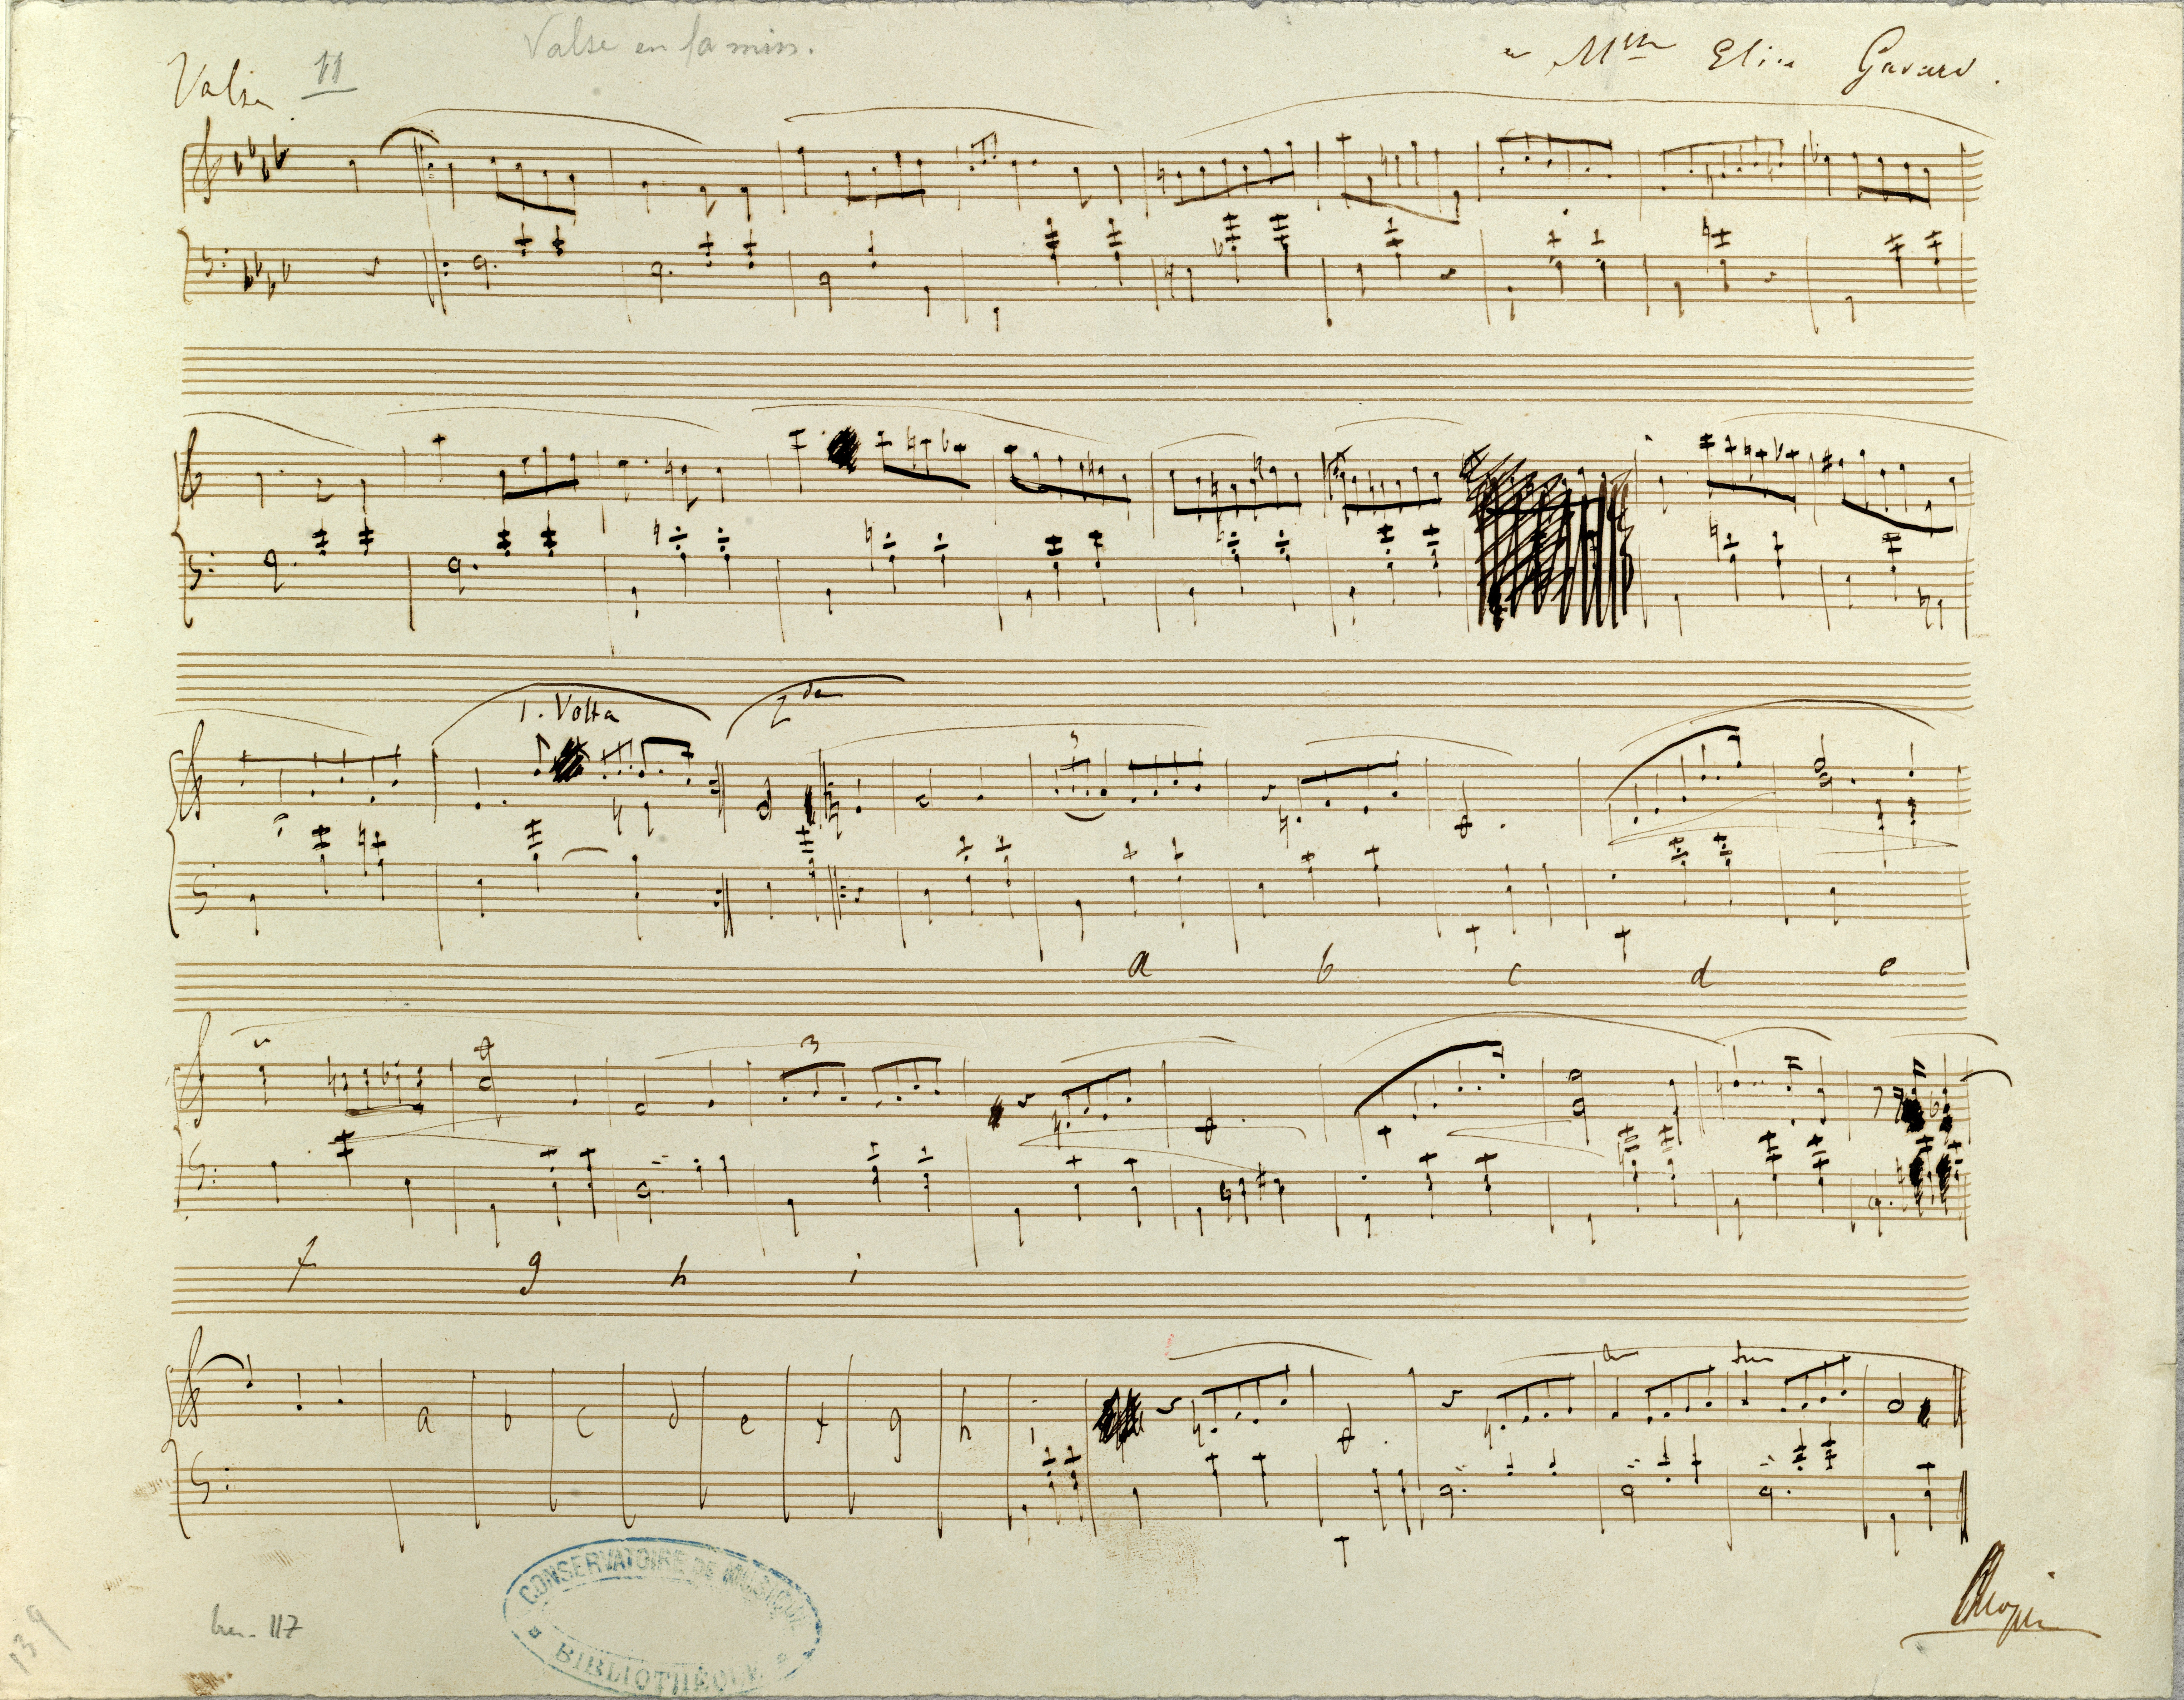 Valse en fa min.
Valse 11
à Mlle Elise Gavard.
1. Volta 2da
3
a b c d e
3
f g h i
a b c d e f g h i
CONSERVATOIRE DE MUSIQUE
BIBLIOTHÈQUE
Chopin
117
139